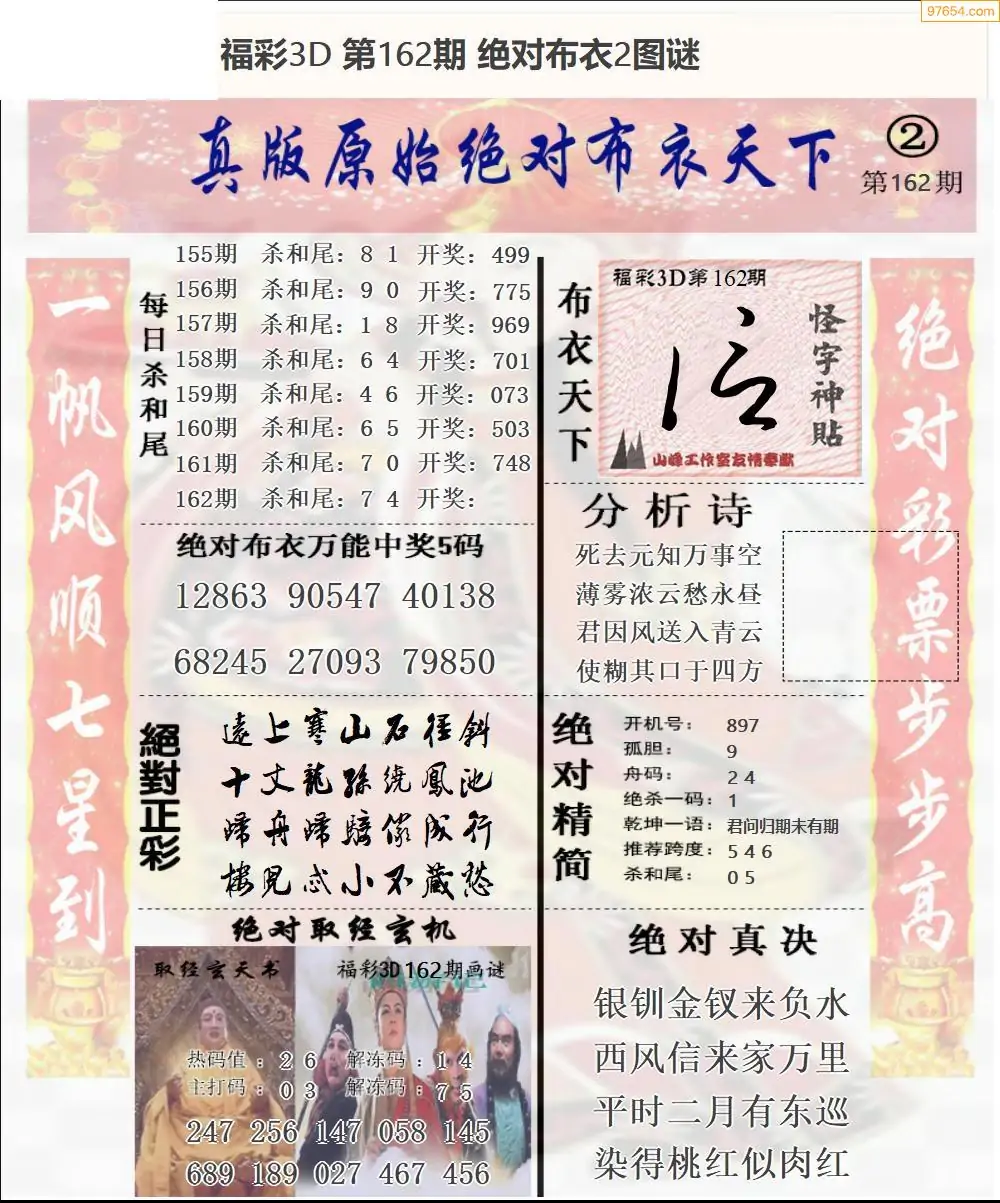 97654.com
福彩3D 第162期 绝对布衣2图谜
真版原始绝对布衣天下
②
第162期
一帆风顺七星到
每日杀和尾
155期 杀和尾：8 1 开奖：499
156期 杀和尾：9 0 开奖：775
157期 杀和尾：1 8 开奖：969
158期 杀和尾：6 4 开奖：701
159期 杀和尾：4 6 开奖：073
160期 杀和尾：6 5 开奖：503
161期 杀和尾：7 0 开奖：748
162期 杀和尾：7 4 开奖：
绝对布衣万能中奖5码
12863 90547 40138
68245 27093 79850
絕對正彩
遠上寒山石徑斜
十丈龍孫繞鳳池
歸舟歸騎儼成行
樓見忒小不藏愁
绝对取经玄机
取经玄天书
福彩3D162期画谜
热码值：2 6 解冻码：1 4
主打码：0 3 解冻码：7 5
247 256 147 058 145
689 189 027 467 456
布衣天下
福彩3D第162期
怪字神貼
山峰工作室友情奉献
分析诗
死去元知万事空
薄雾浓云愁永昼
君因风送入青云
使糊其口于四方
绝对精简
开机号： 897
孤胆： 9
舟码： 2 4
绝杀一码：1
乾坤一语：君问归期未有期
推荐跨度：5 4 6
杀和尾： 0 5
绝对真决
银钏金钗来负水
西风信来家万里
平时二月有东巡
染得桃红似肉红
绝对彩票步步高